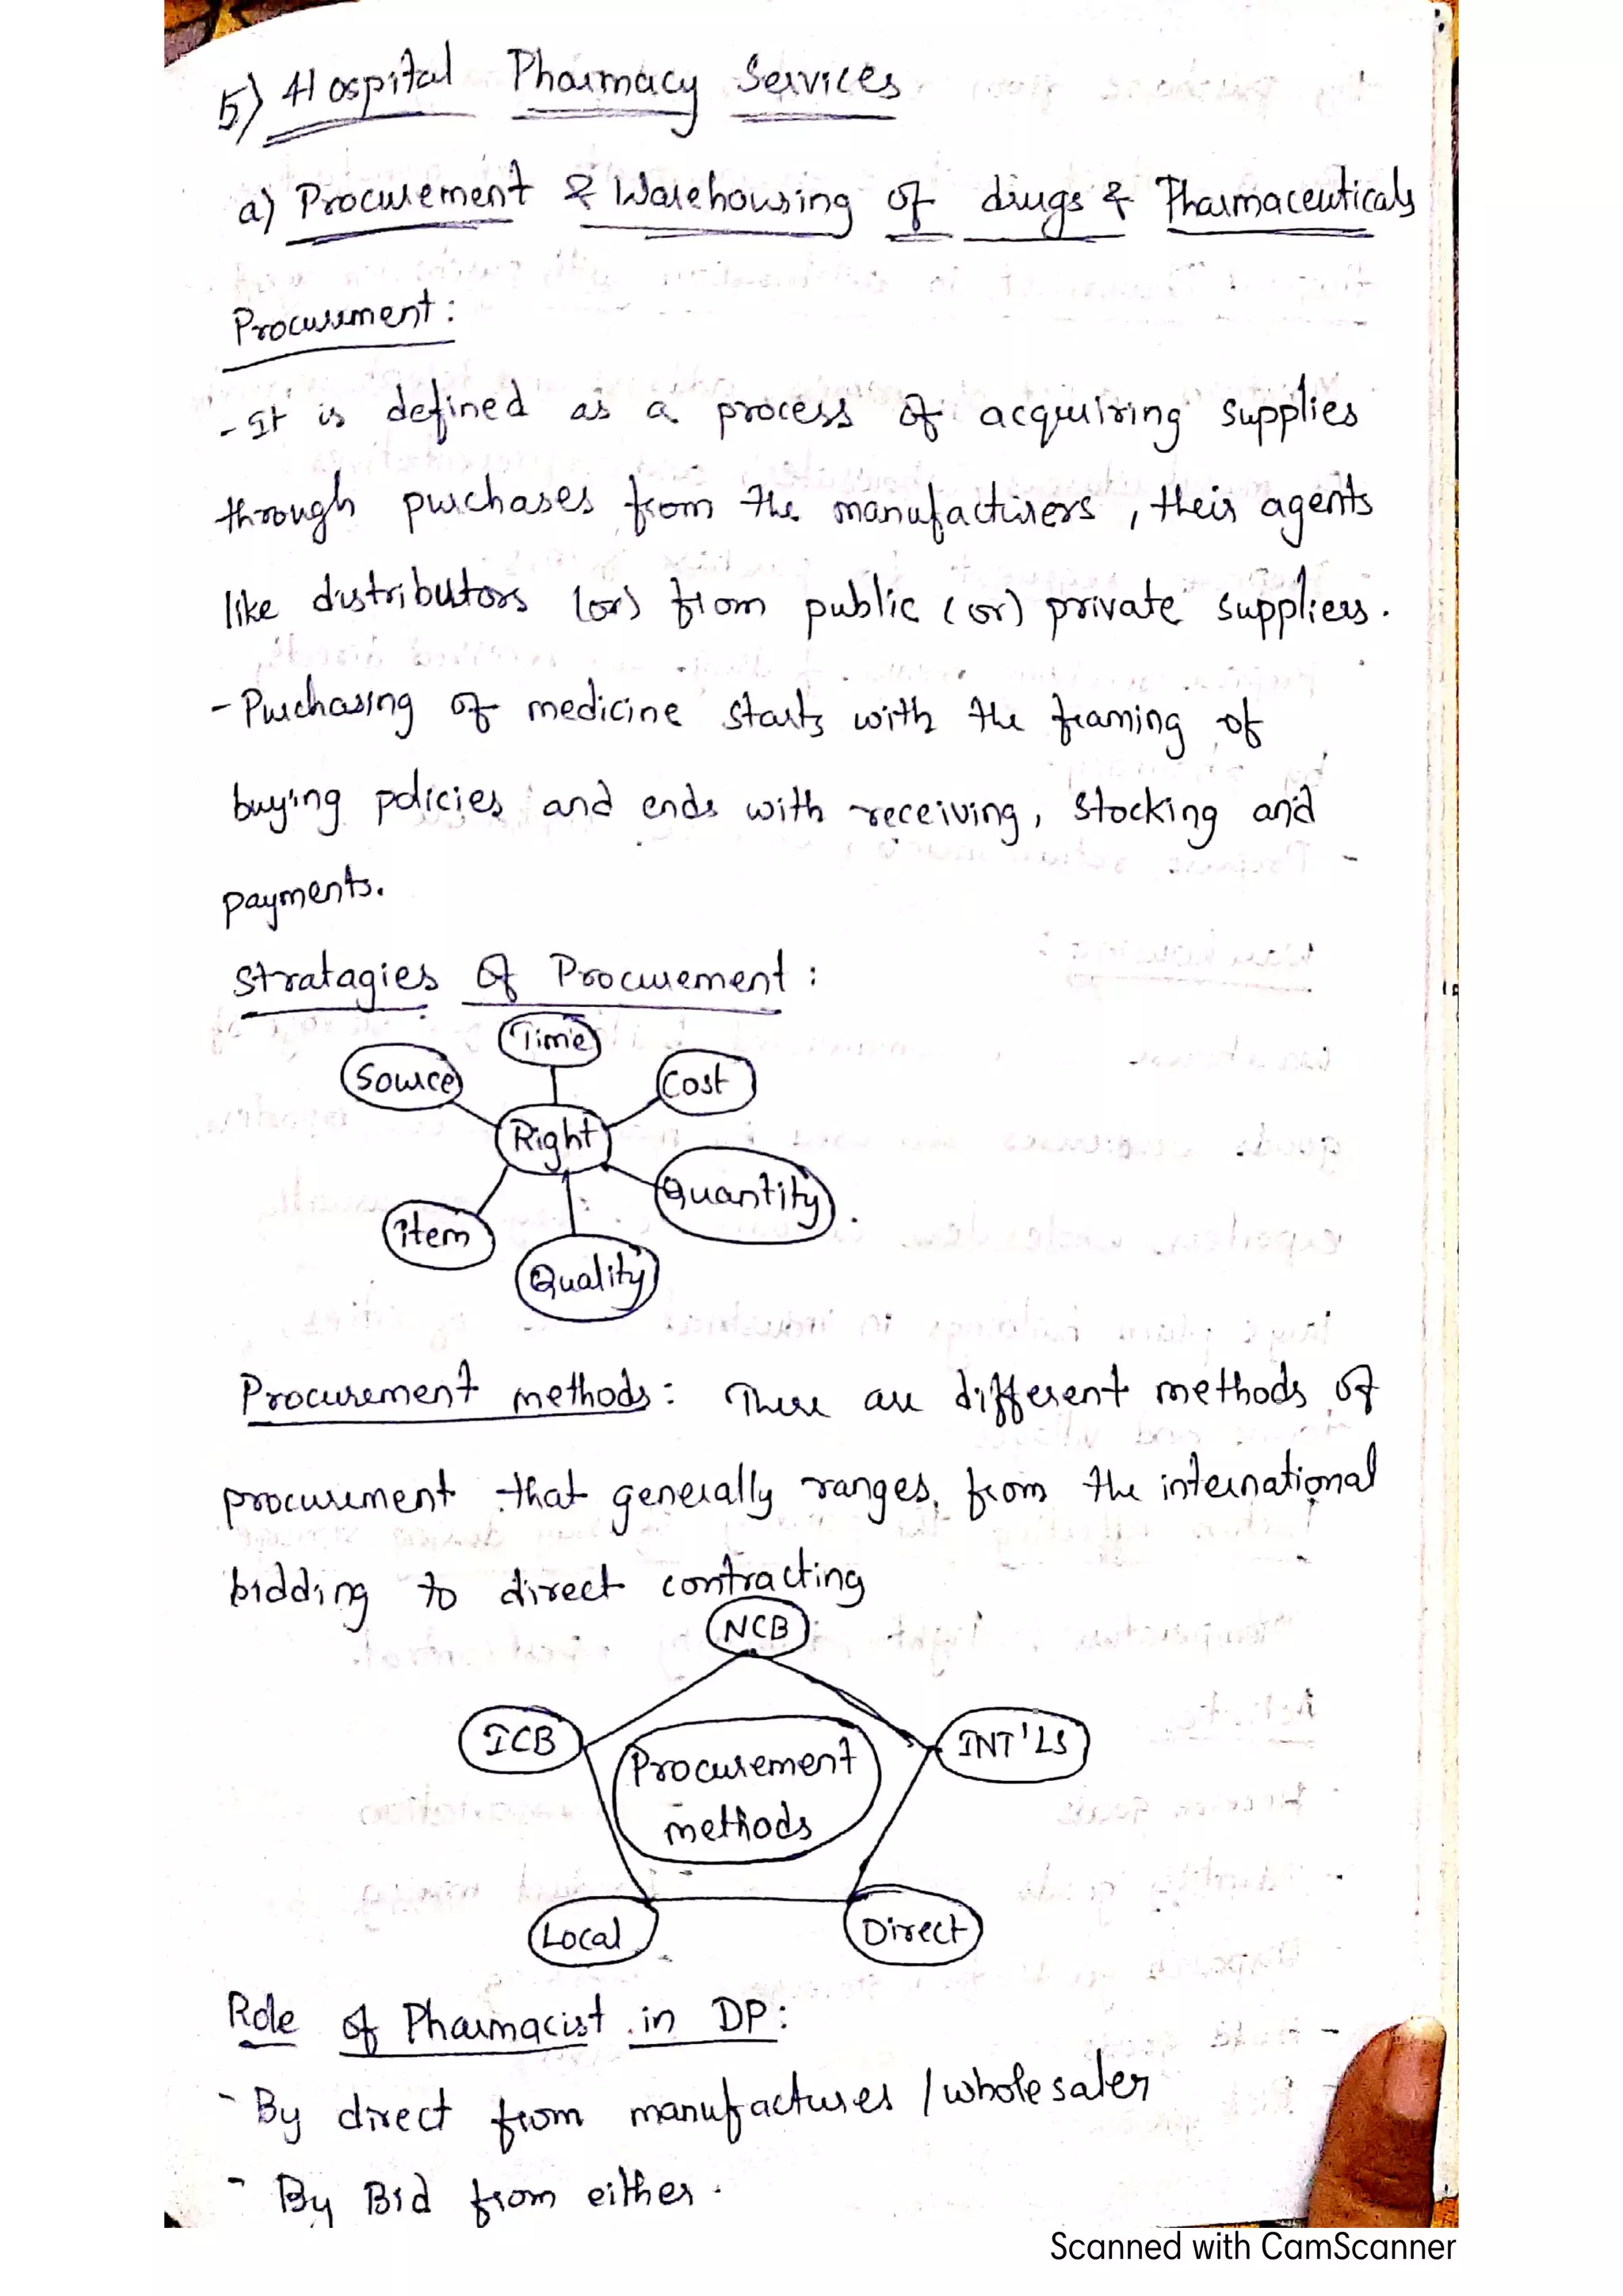 5) Hospital Pharmacy Services
a) Procurement & Warehousing of drugs & Pharmaceuticals
Procurement :
- It is defined as a process of acquiring supplies
through purchases from the manufacturers, their agents
like distributors (or) from public (or) private suppliers.
- Purchasing of medicine starts with the framing of
buying policies and ends with receiving, stocking and
payments.
Stratagies of Procurement :
Time
Source
Cost
Right
Quantity
item
Quality
Procurement methods : There are different methods of
procurement that generally ranges from the international
bidding to direct contracting
NCB
ICB
INT'LS
Procurement
methods
Local
Direct
Role of Pharmacist in DP:
- By direct from manufactures / wholesaler
- By Bid from either.
Scanned with CamScanner